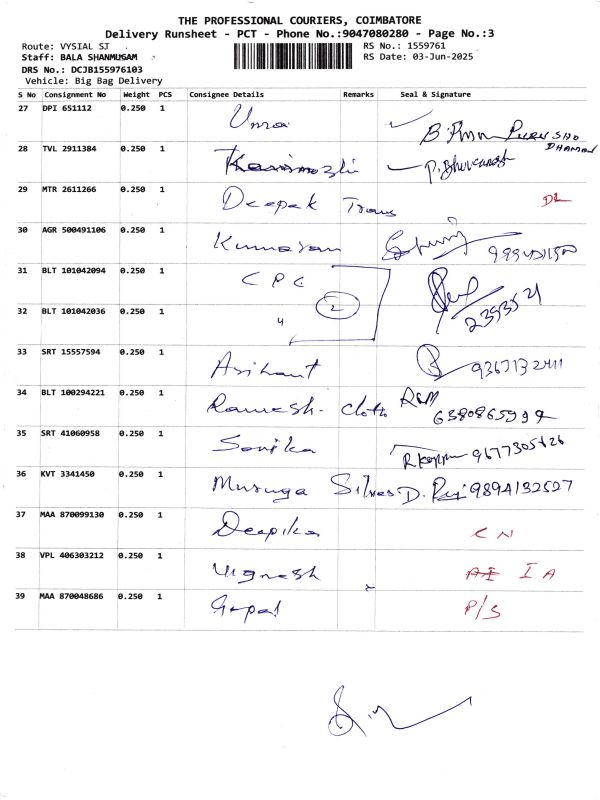 THE PROFESSIONAL COURIERS, COIMBATORE
Delivery Runsheet - PCT - Phone No.:9047080280 - Page No.:3
Route: VYSIAL SJ RS No.: 1559761
Staff: BALA SHANMUGAM RS Date: 03-Jun-2025
DRS No.: DCJB155976103
Vehicle: Big Bag Delivery
S No Consignment No Weight PCS Consignee Details Remarks Seal & Signature
27 DPI 651112 0.250 1 Uma
28 TVL 2911384 0.250 1 Kanimozhi
29 MTR 2611266 0.250 1 Deepak Trans DL
30 AGR 500491106 0.250 1 Kumaran
31 BLT 101042094 0.250 1 CPC
32 BLT 101042036 0.250 1 " 2
33 SRT 15557594 0.250 1 Arihant
34 BLT 100294221 0.250 1 Ramesh - cloth
35 SRT 41060958 0.250 1 Sonika
36 KVT 3341450 0.250 1 Muruga Silver D. 9894132527
37 MAA 870099130 0.250 1 Deepika CN
38 VPL 406303212 0.250 1 Vignesh IA
39 MAA 870048686 0.250 1 Gopal P/S